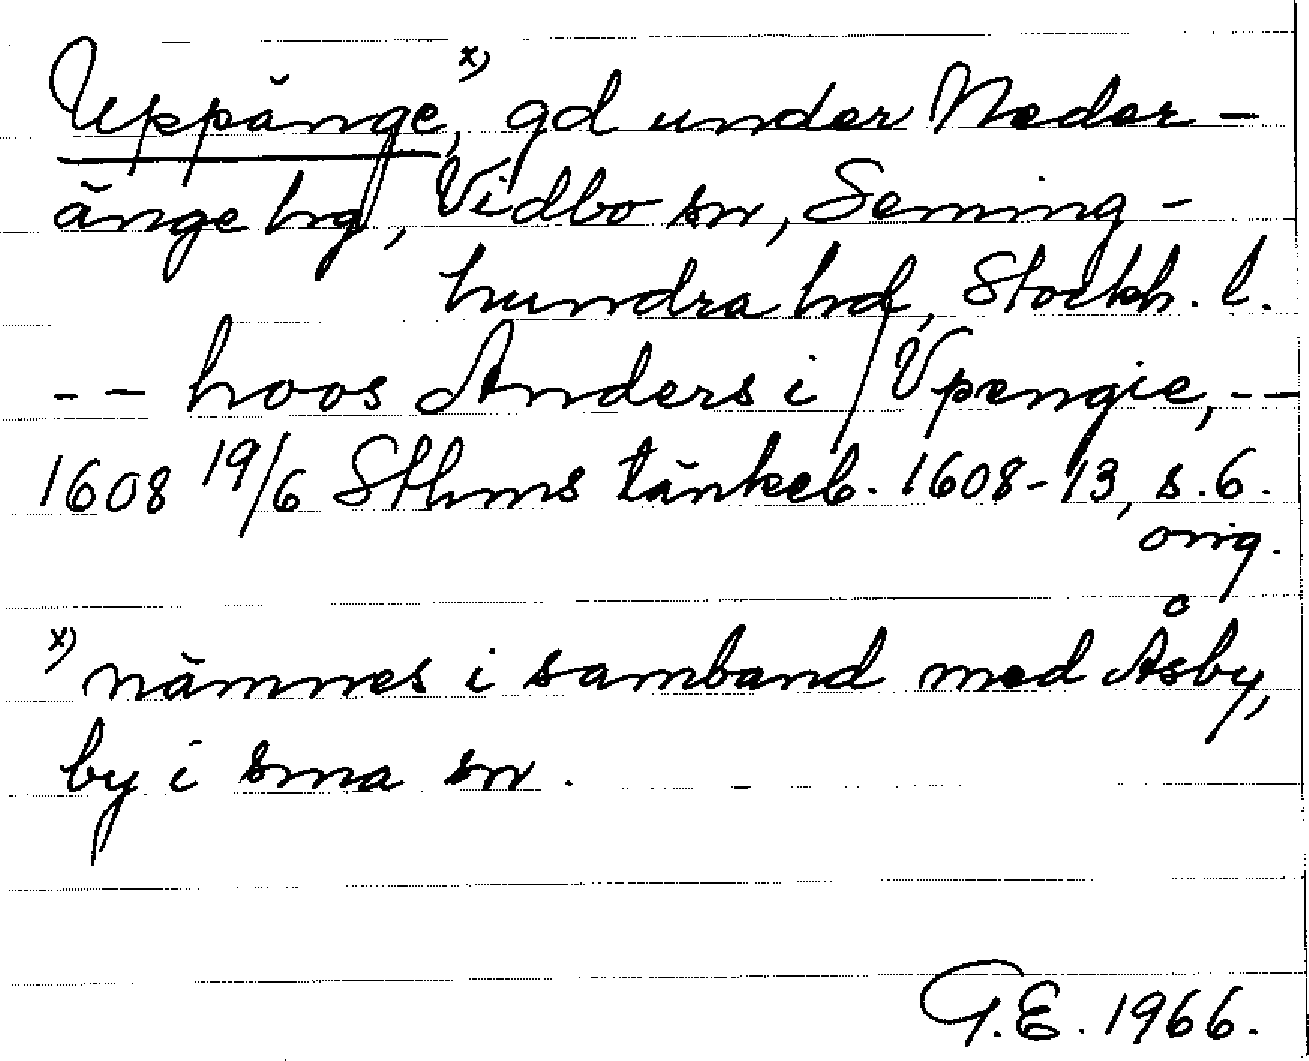 Uppänge, x) gd under Neder-
änge hg, Vidbo sn, Seming-
hundra hd, Stockh. l.
-- hoos Anders i Vpengie, --
1608 19/6 Sthms tänkeb. 1608-13, s. 6.
orig.
x) nämnes i samband med Åsby,
by i sma sn.
G.E. 1966.